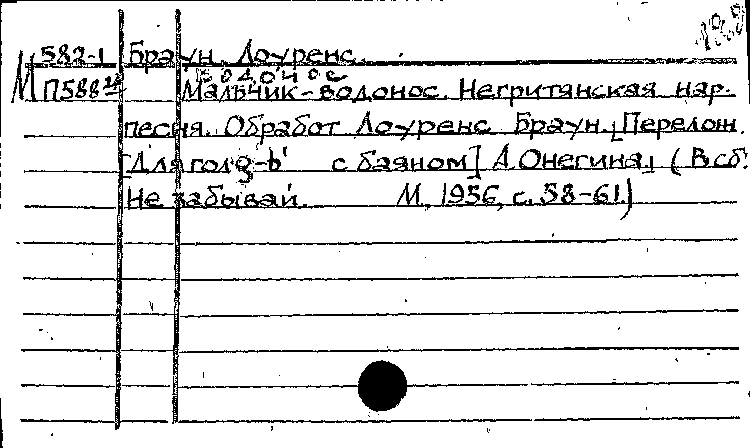 582-1 Браун, Лоуренс.
Водонос
М П588 Мальчик-водонос. Негритянская нар.
песня. Обработ Лоуренс Браун. [Перелож.
[Для гол с баяном] А. Онегина] (В сб:
Не забывай. М., 1956, с. 58-61.)